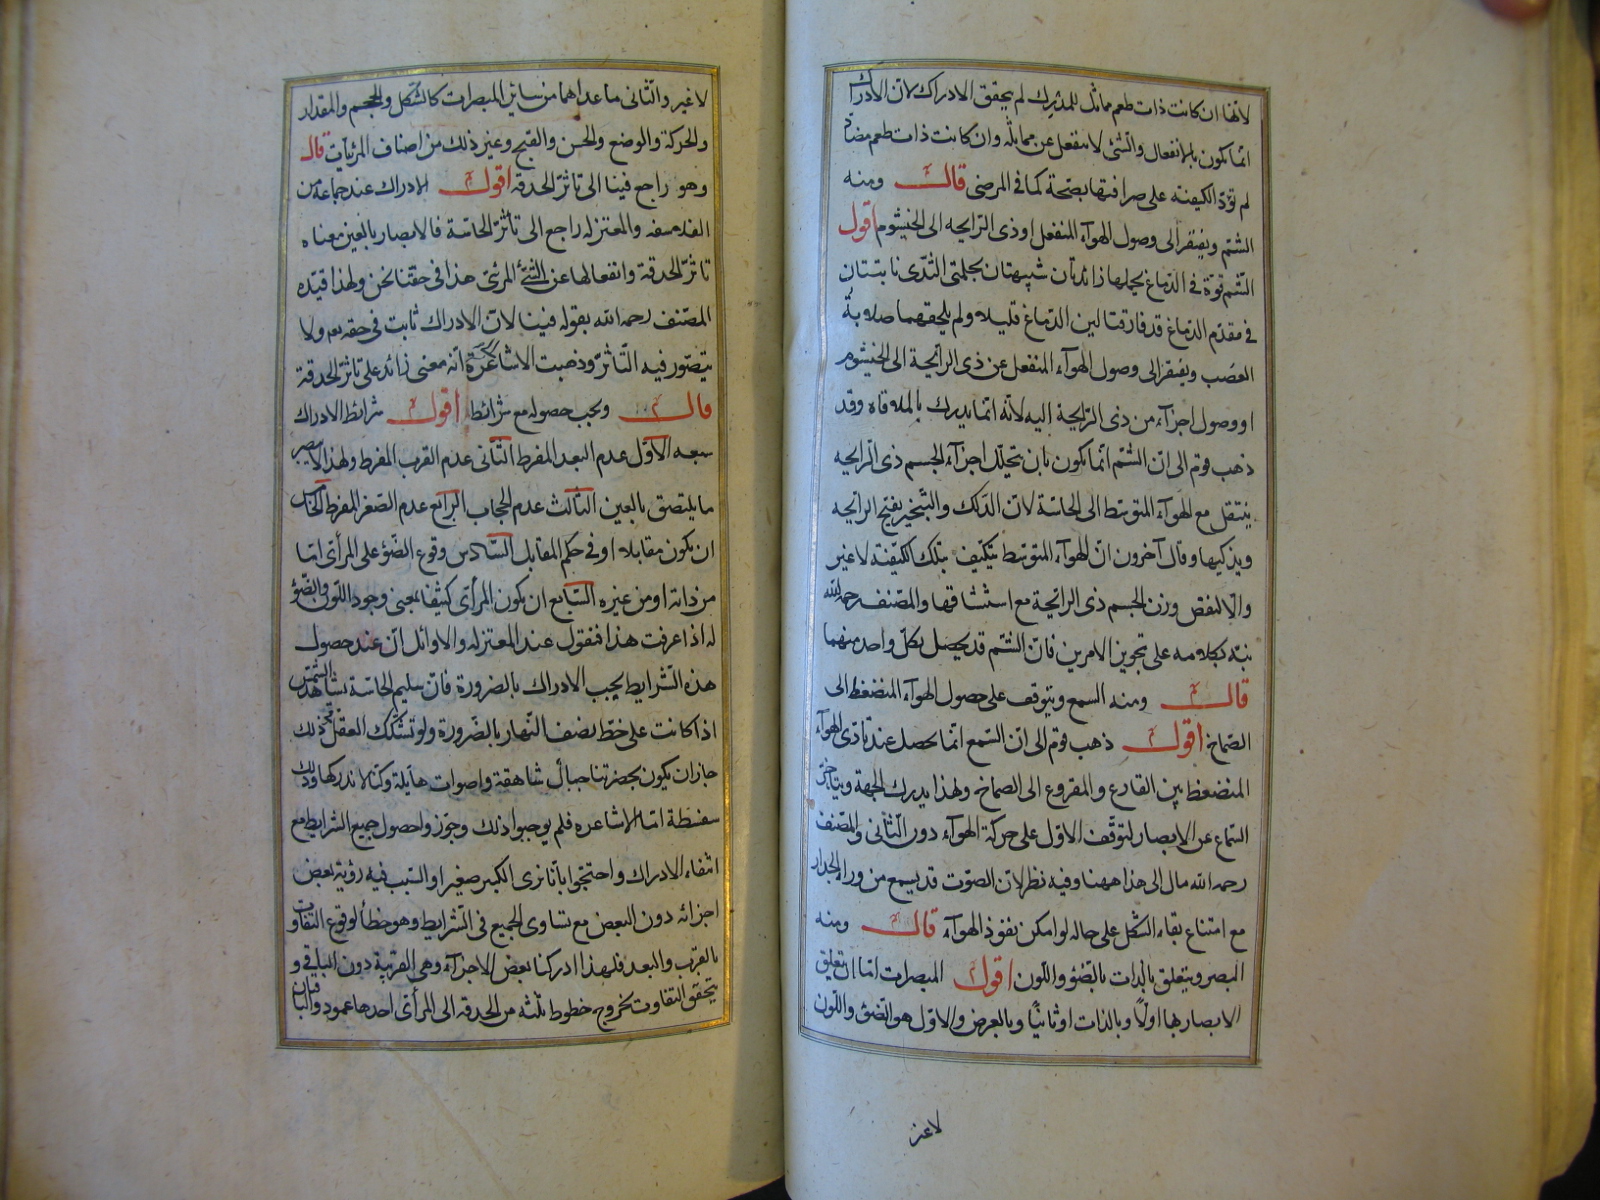 لانها ان كانت ذات طعم مماثل للمدرك لم يتحقق الادراك لان الادراك
انما يكون بالانفعال والشئ لا ينفعل عن مماثله وان كانت ذات طعم مضاد
لم تؤد الكيفية على صرافتها بصحة كما في المرضى قال ومنه
الشم ويفتقر الى وصول الهواء المنفعل او ذى الرايحه الى الخيشوم اقول
الشم قوة في الدماغ يحملها زائدتان شبيهتان بحلمتى الثدى نابتتان
في مقدم الدماغ قد فارقتا لين الدماغ قليلا ولم يلحقهما صلابة
العصب ويفتقر الى وصول الهواء المنفعل عن ذى الرائحة الى الخيشوم
او وصول اجزاء من ذى الرايحة اليه لانه انما يدرك بالملاقاه وقد
ذهب قوم الى ان الشم انما يكون بان يتحلل اجزاء الجسم ذى الرايحه
ينتقل مع الهواء المتوسط الى الحاسة لان الدلك والتبخير يفيح الرايحه
ويذكيها وقال آخرون ان الهواء المتوسط يتكيف بتلك الكيفية لا غير
والا لنقص وزن الجسم ذى الرائحة مع استنشاقها والمصنف رحمه الله
نبه بكلامه على تجويز الامرين فان الشم قد يحصل بكل واحد منهما
قال ومنه السمع ويتوقف على حصول الهواء المنضغط الى
الصماخ اقول ذهب قوم الى ان السمع انما يحصل عند تادى الهواء
المنضغط بين القارع والمقروع الى الصماخ ولهذا يدرك الجهة ويتاخر
السماع عن الابصار لتوقف الاول على حركة الهواء دون الثانى والمصنف
رحمه الله مال الى هذا ههنا وفيه نظر لان الصوت قد يسمع من وراء الجدار
مع امتناع بقاء الشكل على حاله لو امكن نفوذ الهواء قال ومنه
البصر ويتعلق بالذات بالضوء واللون اقول المبصرات اما ان يتعلق
الابصار بها اولا وبالذات او ثانيا وبالعرض والاول هو الضوء واللون
لا غير
لا غير والثانى ما عداهما من سائر المبصرات كالشكل والحجم والمقدار
والحركة والوضع والحسن والقبح وغير ذلك من اصناف المرئيات قال
وهو راجع فينا الى تاثر الحدقة اقول الادراك عند جماعة من
الفلاسفه والمعتزله راجع الى تاثر الحاسة فالابصار بالعين معناه
تاثر الحدقة وانفعالها عن الشئ المرئى هذا فى حقنا نحن ولهذا قيده
المصنف رحمه الله بقوله فينا لان الادراك ثابت فى حقه تعه ولا
يتصور فيه التاثر وذهبت الاشاعرة انه معنى زائد على تاثر الحدقة
قال ويجب حصوله مع شرائط اقول شرائط الادراك
سبعه الاول عدم البعد المفرط الثانى عدم القرب المفرط ولهذا لا يبصر
ما يلتصق بالعين الثالث عدم الحجاب الرابع عدم الصغر المفرط الخامس
ان يكون مقابلا او فى حكم المقابل السادس وقوع الضوء على المرأى اما
من ذاته او من غيره السابع ان يكون المرأى كثيفا بمعنى وجود اللون والضوء
له اذا عرفت هذا فنقول عند المعتزله والاوائل ان عند حصول
هذه الشرايط يجب الادراك بالضرورة فان سليم الحاسة يشاهد الشمس
اذا كانت على خط نصف النهار بالضرورة ولو تشكك العقل فى ذلك
جاز ان يكون بحضرتنا جبال شاهقة واصوات هايلة وكنا لا ندركها وذلك
سفسطة اما الاشاعره فلم يوجبوا ذلك وجوزوا حصول جميع الشرايط مع
انتفاء الادراك واحتجوا بانا نرى الكبير صغيرا والسبب فيه رؤية بعض
اجزائه دون البعض مع تساوى الجميع فى الشرايط وهو خطأ لوقوع التفاوت
بالقرب والبعد فلهذا ادركنا بعض الاجزاء وهى القريبة دون الباقى و
يتحقق التفاوت بخروج خطوط ثلثه من الحدقه الى المرأى احدها عمود والباقيان